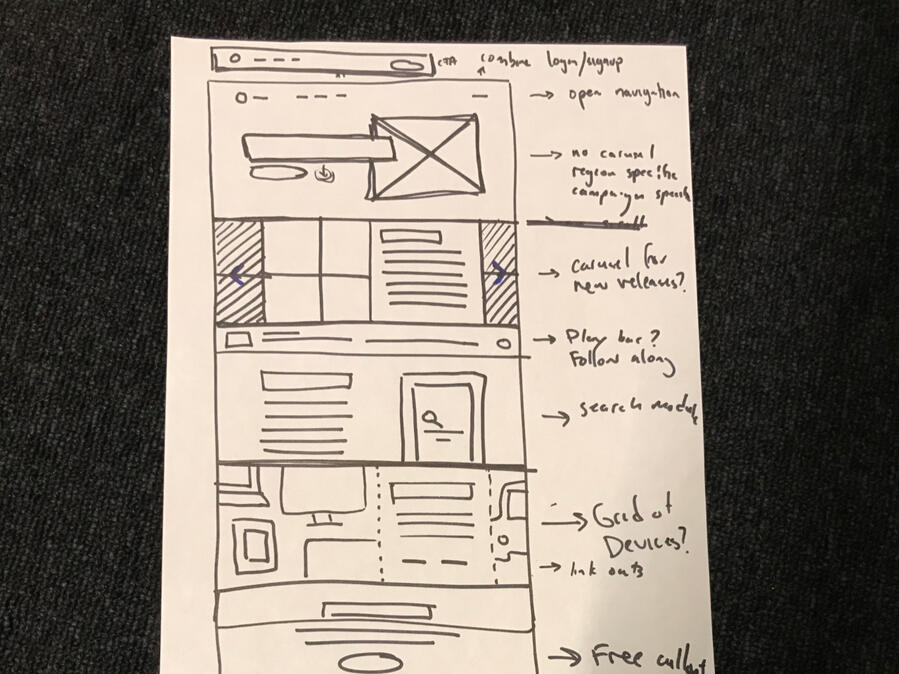 CTA
combine login/signup
open navigation
no carousel
region specific
campaign specific
carousel for
new releases?
Play bar?
Follow along
search module
Grid of
Devices?
link outs
Free callout